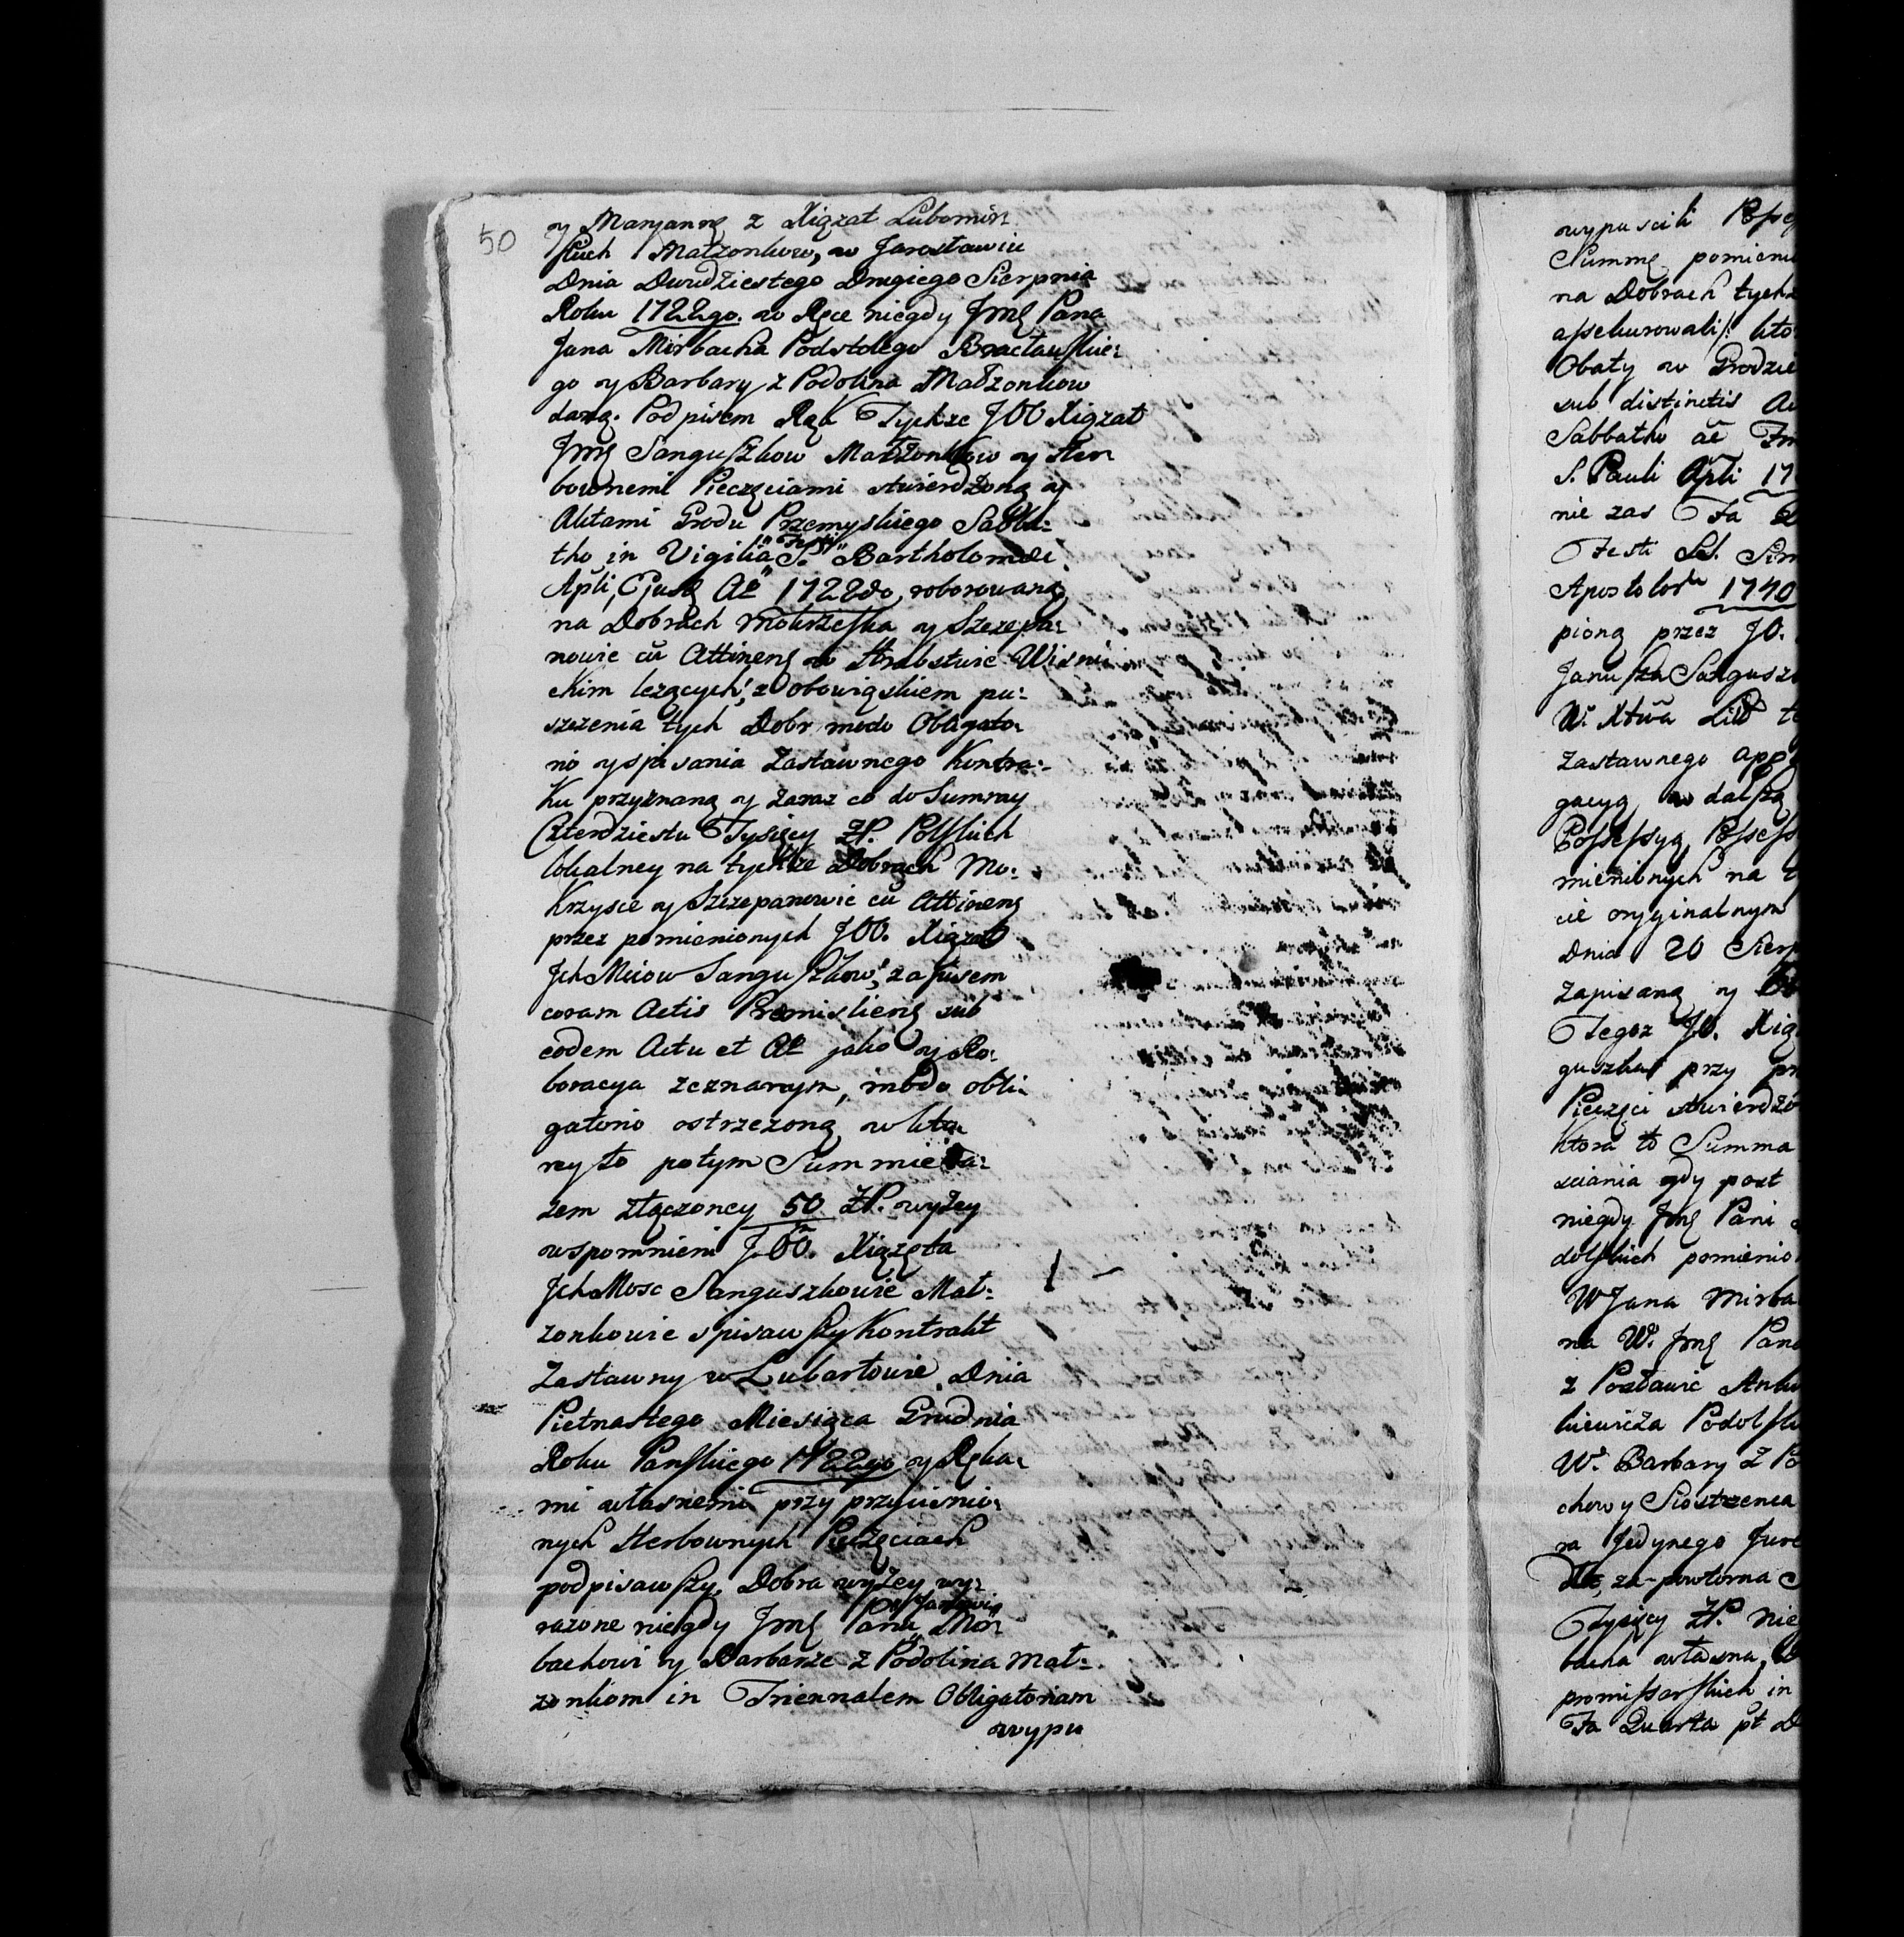 50
y Maryanną z Xiążat Lubomir:
skich Małzonkow, w Jarosławiu
Dnia Dwudziestego Drugiego Sierpnia
Roku 1722go. w Ręce niegdy Jmę Pana
Jana Mirbacha Podstolego Bracławskie:
go y Barbary z Podolina Małzonkow
daną. Podpisem Rąk Tychze JOO Xiążat
Jmę Sanguszkow Małżonkow y Her:
bownemi Pieczęciami stwierdzoną ay
Aktami Grodu Przemyskiego Sabba:
tho in Vigilia Festi S. Bartholomaei
Apłi, Ejusd Ao 1722do, roborowaną
na Dobrach Mokrzyska y Szczepa:
nowie cũ Attinenę w Hrabstwie Wisni
ckim leżących, z obowiąskiem pu:
szczenia tych Dobr modo Obligato:
rio y spisania Zastawnego Kontra:
ktu przyznaną y zaraz co do Summy
Czterdziestu Tysięcy ZP. Polskich
lokalney na tychże Dobrach Mo:
krzysce y Szczepanowie cũ Attinenę
przez pomienionych JOO. Xiążąt
JchMciow Sanguszkow, zapisem
coram Actis Premislienę sub
eodem Actu et Ao jako y Ro:
boracya zeznanym, modo obli:
gatorio ostrzezoną w kto:
rey to potym Summie Ra:
zem złączoney 50 m ZP. wyżey
wspomnieni JOO. Xiążęta
JchMosc Sanguszkowie Mał:
zonkowie spisawszy Kontrakt
Zastawny w Lubartowie Dnia
Pietnastego Miesiąca Grudnia
Roku Panskiego 1722go y Ręka:
mi własnemi przy przyciśnio:
nych Herbownych Pieczęciach
podpisawszy, Dobra wyżey wy:
razone niegdy Jmę Panu Janowi Mir:
bachowi y Barbarze z Podolina Mał:
zonkom in Triennalem Obligatoriam
wypu
wypuscili Posse
Summę pomieni
na Dobrach tychż
assekurowali/: kto
Obaty w Grodzie
sub distinctis Ac
Sabbatho
S. Pauli Apłi 17
nie zas Fa
Festi SS. Sim
Apostolor 1740
pioną przez JO.
Janusza Sanguszk
W. Xtwa Lit
Zastawnego app
gacyą w dalszą
Possessyą, Possess
mienionych na
cie oryginalnym
Dnia 20 Sierp
zapisaną y
Tegoz JO. Xią
guszka przy
Pieczęci stwierdzo
Ktora to Summa
sciania gdy post
niegdy Jmę Pani
dolskich pomienio
WJana Mirba
na W. Jmę Pana
z Pozławic Anku
kiewicza Podolsk
W. Barbary z Po
chowy Siostrzenca
ra Jedynego
za powtorna
Tysięcy ZP. nie
bacha własna,
promissorskich in
Fa Quarta pt